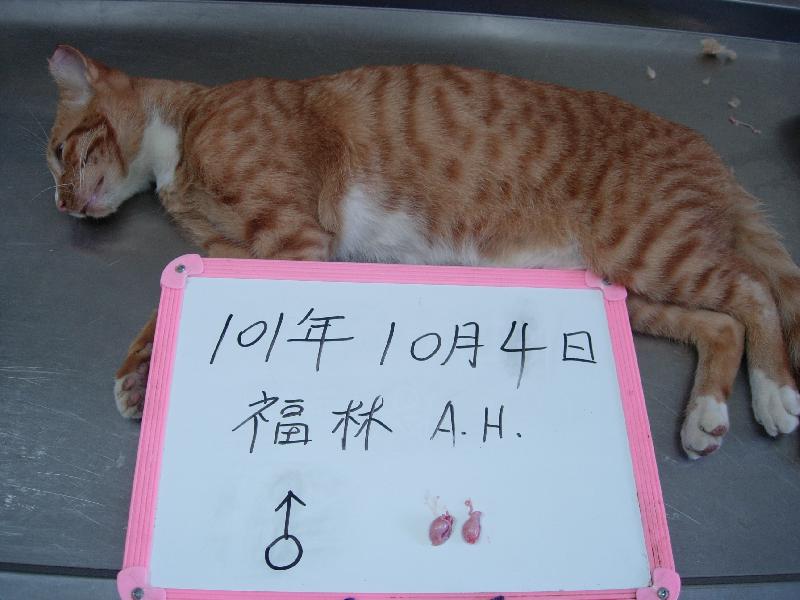 101年10月4日
福林 A.H.
♂